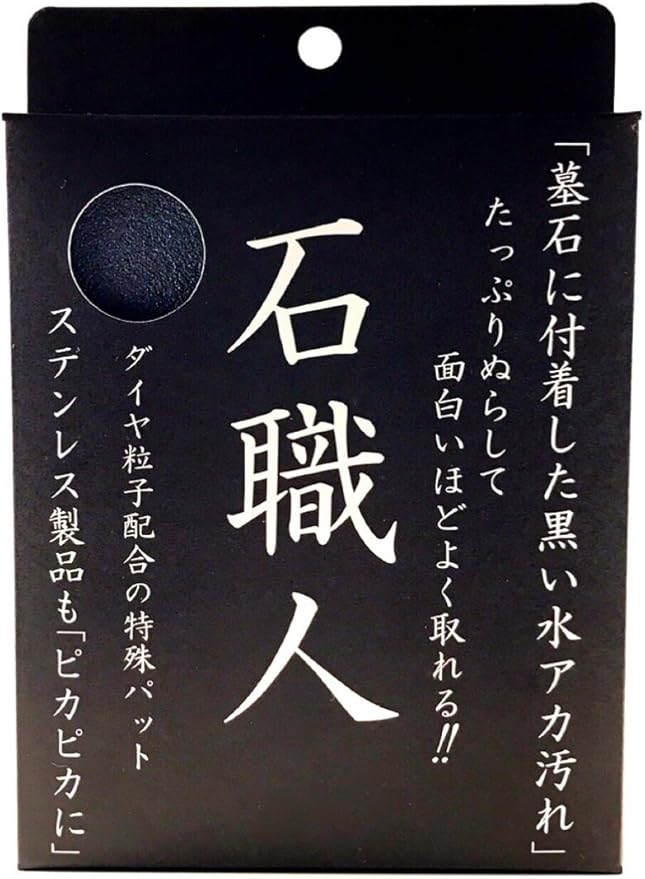 「墓石に付着した黒い水アカ汚れ」
たっぷりぬらして
面白いほどよく取れる!!
石職人
ダイヤ粒子配合の特殊パット
ステンレス製品も「ピカピカに」